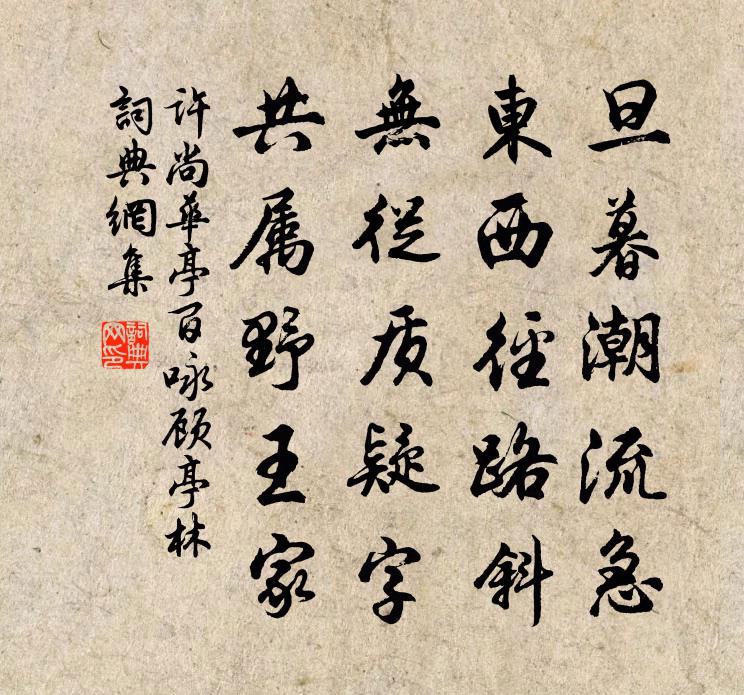 旦暮潮流急
東西徑路斜
無從质疑字
共属野王家
许尚華亭百咏顾亭林
詞典網集
詞典網印